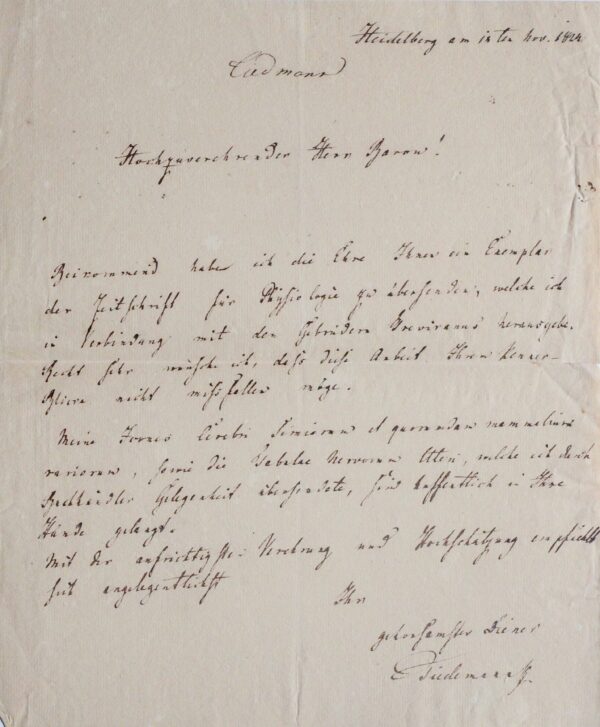 Heidelberg am 18ten Nov. 1824
Tiedmann
Hochzuverehrender Herr Baron!
Beikommend habe ich die Ehre Ihnen ein Exemplar
der Zeitschrift für Physiologie zu übersenden, welche ich
in Verbindung mit den Gebrüdern Treviranus herausgebe.
Recht sehr wünsche ich, daß diese Arbeit Ihrem Kenner-
Blicke nicht mißfallen möge.
Meine Icones Cerebri Simiarum et quorundam mammalium
rariorum, sowie die Tabulae Nervorum Uteri, welche ich durch
Buchhändler Gelegenheit übersendete, sind hoffentlich in Ihre
Hände gelangt.
Mit der aufrichtigsten Verehrung und Hochschätzung empfiehlt
sich angelegentlichst
Ihr
gehorsamster Diener
Tiedemann